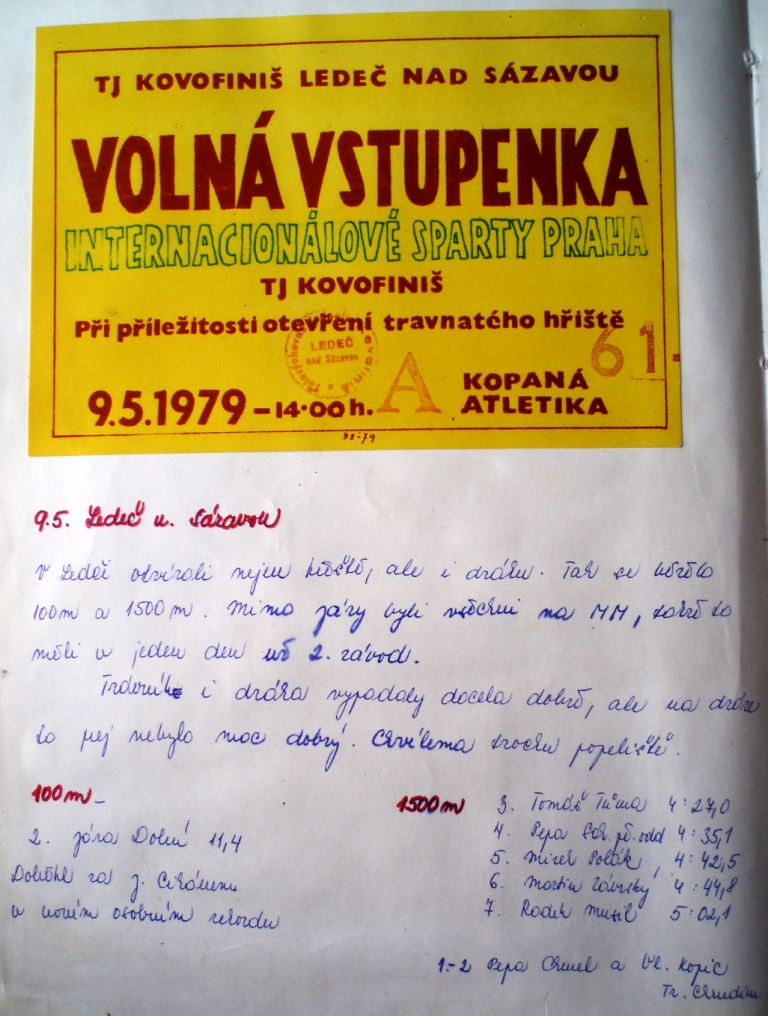 TJ KOVOFINIŠ LEDEČ NAD SÁZAVOU
VOLNÁ VSTUPENKA
INTERNACIONÁLOVÉ SPARTY PRAHA
TJ KOVOFINIŠ
Při příležitosti otevření travnatého hřiště
LEDEČ
nad Sázavou
61
9.5.1979 – 14·00 h. A
KOPANÁ
ATLETIKA
32-79
9.5. Ledeč n. Sázavou
V Ledči otvírali nejen hřiště, ale i dráhu. Tak se běželo
100m a 1500m. Mimo Járy byli všichni na MM, takže to
měli v jeden den už 2. závod.
i dráha vypadaly docela dobře, ale na dráze
to prej nebylo moc dobrý. Chvílema trochu popeliště.
100m –
2. Jára Dolní 11,4
Doběhl za J.
v novém osobním rekordu
1500m
3. Tomáš Tůma 4:27,0
4. Pepa 4:35,1
5. Mirek Polák 4:42,5
6. Martin Závrský 4:44,8
7. Radek Musil 5:02,1
1.-2 Pepa Chmel a Vl. Kopic
Tr. Chrudim